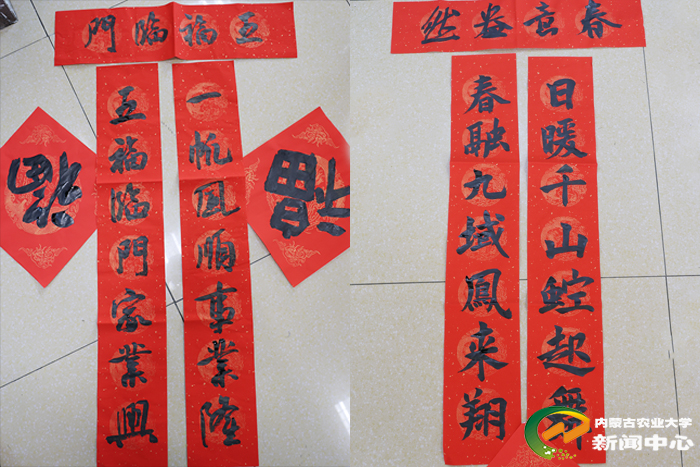 五福临門
一帆風順事業隆
五福临門家業興
福
福
春意盎然
日暖千山龍起舞
春融九域鳳来翔
内蒙古农业大学
新闻中心